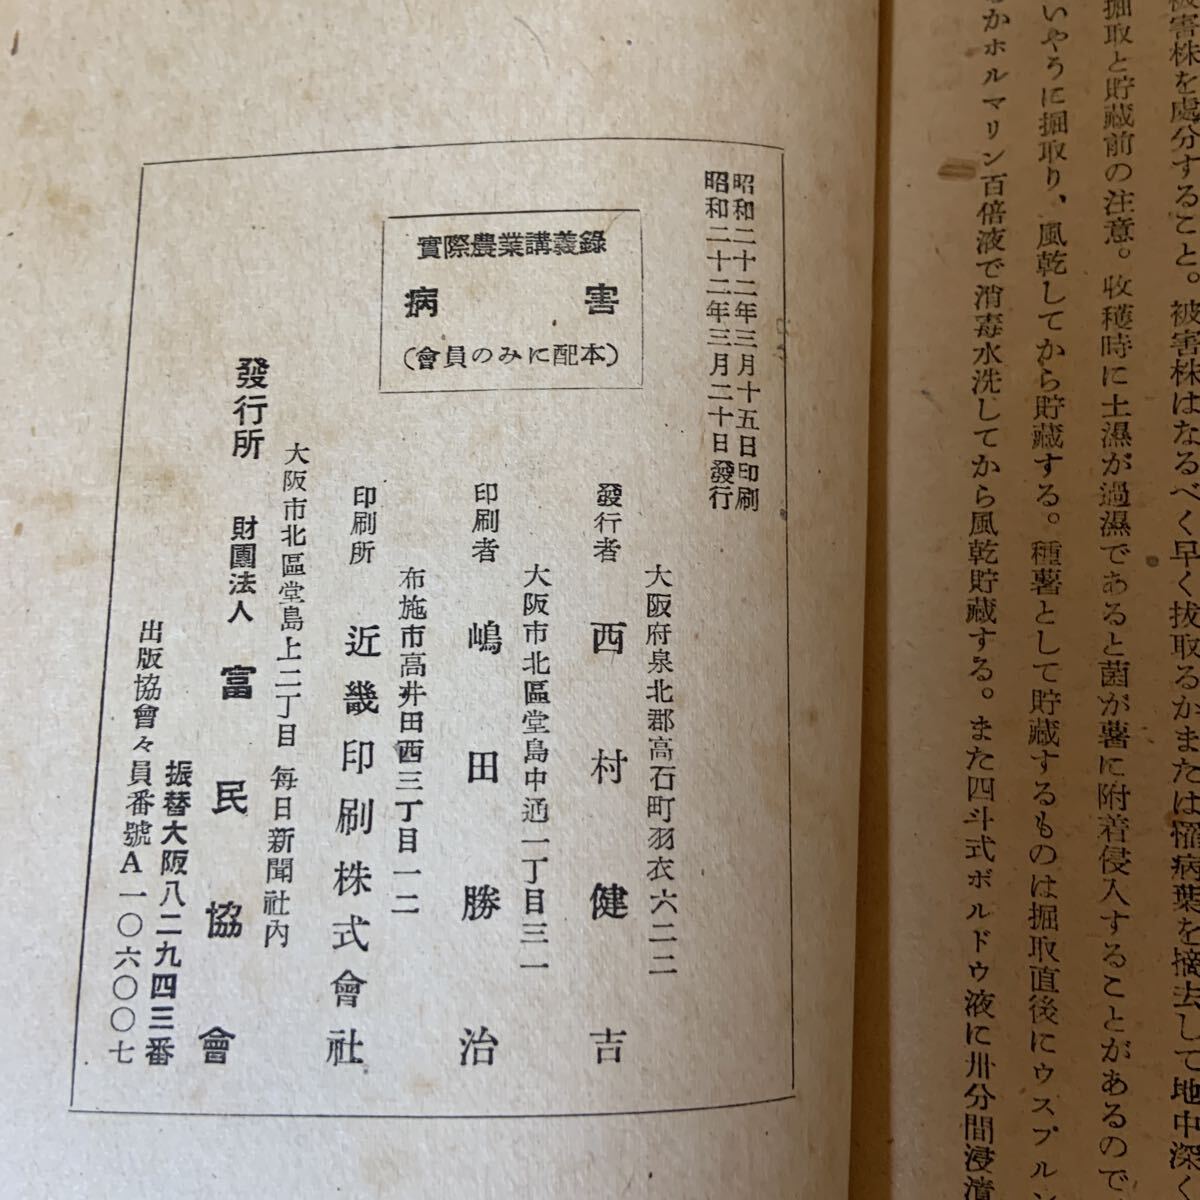 被害株を處分すること。被害株はなるべく早く拔取るかまたは罹病葉を摘去して地中深く
掘取と貯藏前の注意。收穫時に土濕が過濕であると菌が薯に附着侵入することがあるので
いやうに掘取り、風乾してから貯藏する。種薯として貯藏するものは掘取直後にウスプルン
かホルマリン百倍液で消毒水洗してから風乾貯藏する。また四斗式ボルドウ液に卅分間浸漬
昭和二十二年三月十五日印刷
昭和二十二年三月二十日發行
實際農業講義錄
病害
(會員のみに配本)
大阪府泉北郡高石町羽衣六二二
發行者 西村健吉
大阪市北區堂島中通一丁目三一
印刷者 嶋田勝治
布施市高井田西三丁目一二
印刷所 近畿印刷株式會社
大阪市北區堂島上二丁目 每日新聞社內
發行所 財團法人 富民協會
振替大阪八二九四三番
出版協會々員番號A一〇六〇〇七